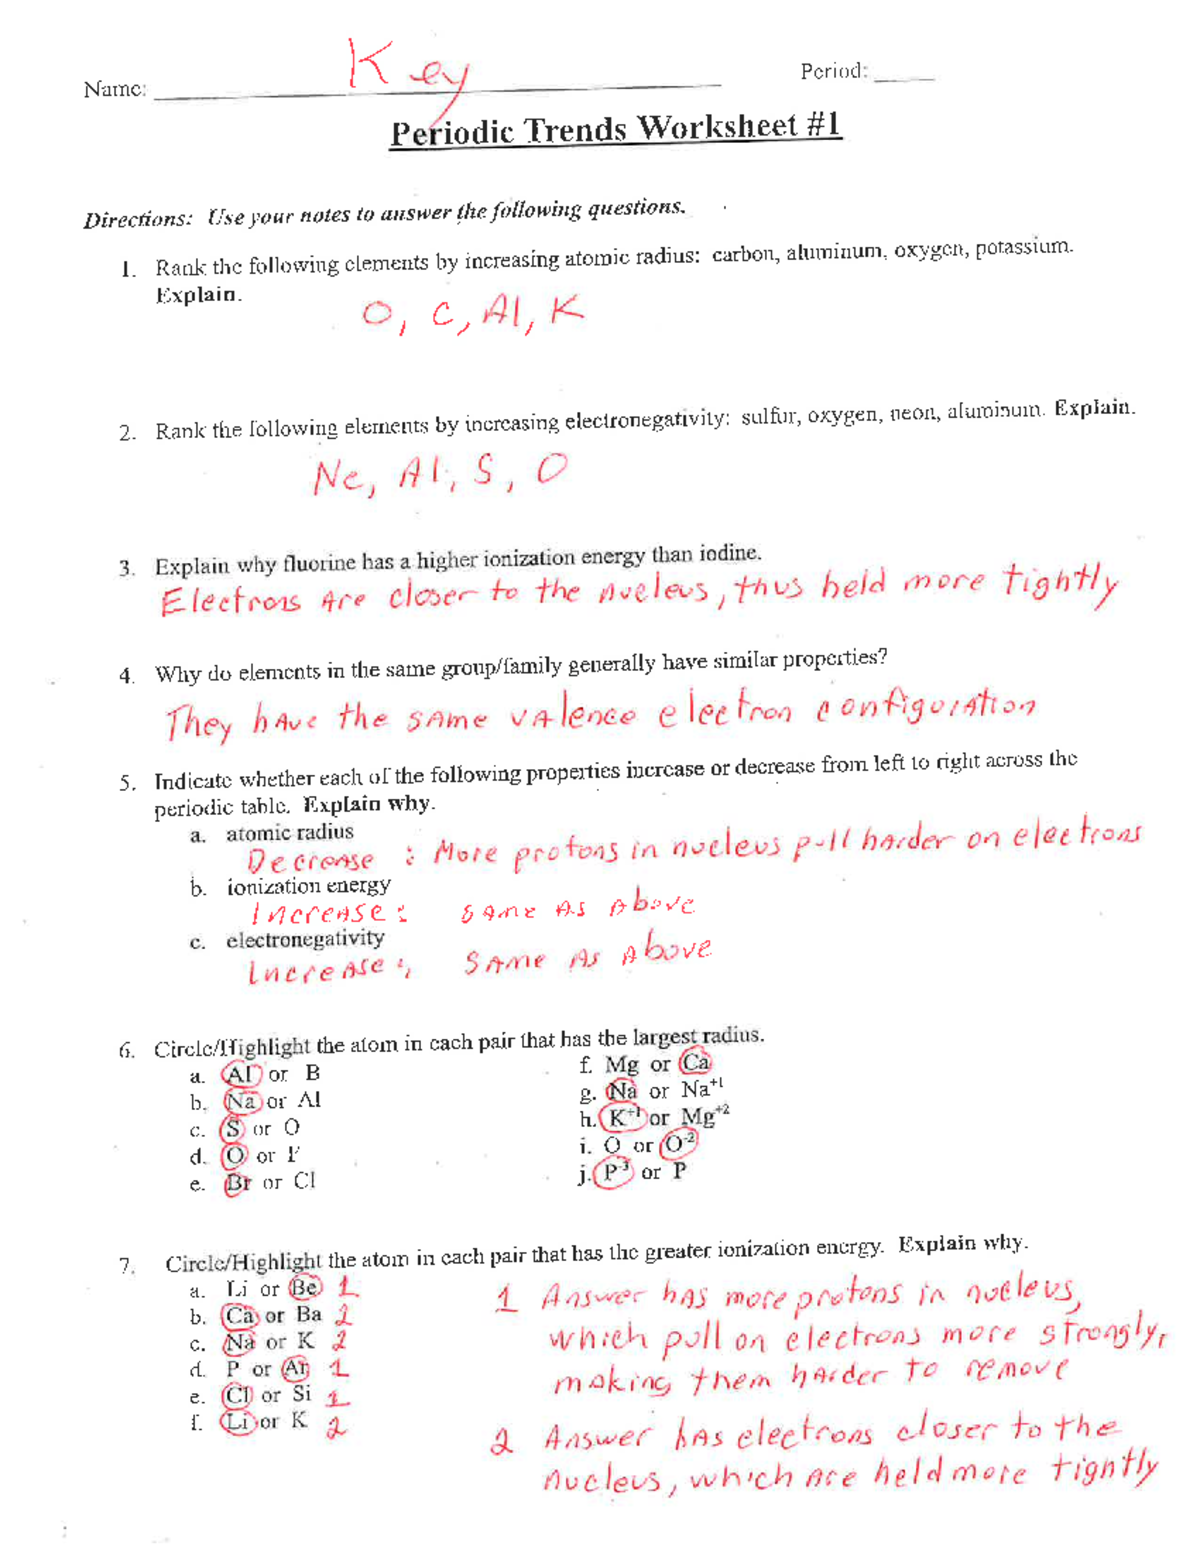 Key
Name: Period:
Periodic Trends Worksheet #1
Directions: Use your notes to answer the following questions.
1. Rank the following elements by increasing atomic radius: carbon, aluminum, oxygen, potassium.
Explain.
O, C, Al, K
2. Rank the following elements by increasing electronegativity: sulfur, oxygen, neon, aluminum. Explain.
Ne, Al, S, O
3. Explain why fluorine has a higher ionization energy than iodine.
Electrons are closer to the nucleus, thus held more tightly
4. Why do elements in the same group/family generally have similar properties?
They have the same valence electron configuration
5. Indicate whether each of the following properties increase or decrease from left to right across the
periodic table. Explain why.
a. atomic radius
Decrease : More protons in nucleus pull harder on electrons
b. ionization energy
Increase : same as above
c. electronegativity
Increase : same as above
6. Circle/Highlight the atom in each pair that has the largest radius.
a. Al or B
b. Na or Al
c. S or O
d. O or F
e. Br or Cl
f. Mg or Ca
g. Na or Na+1
h. K+1 or Mg+2
i. O or O-2
j. P-3 or P
7. Circle/Highlight the atom in each pair that has the greater ionization energy. Explain why.
a. Li or Be 1
b. Ca or Ba 2
c. Na or K 2
d. P or Ar 1
e. Cl or Si 1
f. Li or K 2
1 Answer has more protons in nucleus,
which pull on electrons more strongly,
making them harder to remove
2 Answer has electrons closer to the
nucleus, which are held more tightly